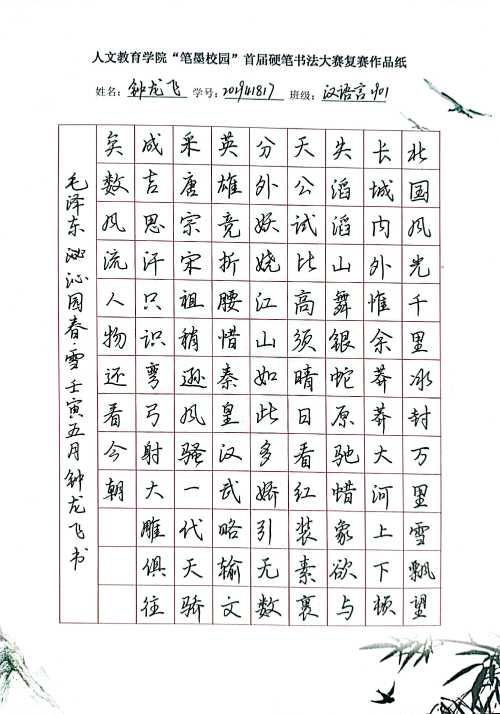 人文教育学院“笔墨校园”首届硬笔书法大赛复赛作品纸
姓名：钟龙飞 学号：201941817 班级：汉语言1901
北国风光千里冰封万里雪飘望
长城内外惟余莽莽大河上下顿
失滔滔山舞银蛇原驰蜡象欲与
天公试比高须晴日看红装素裹
分外妖娆江山如此多娇引无数
英雄竞折腰惜秦皇汉武略输文
采唐宗宋祖稍逊风骚一代天骄
成吉思汗只识弯弓射大雕俱往
矣数风流人物还看今朝
毛泽东 沁沁园春·雪 壬寅五月钟龙飞书